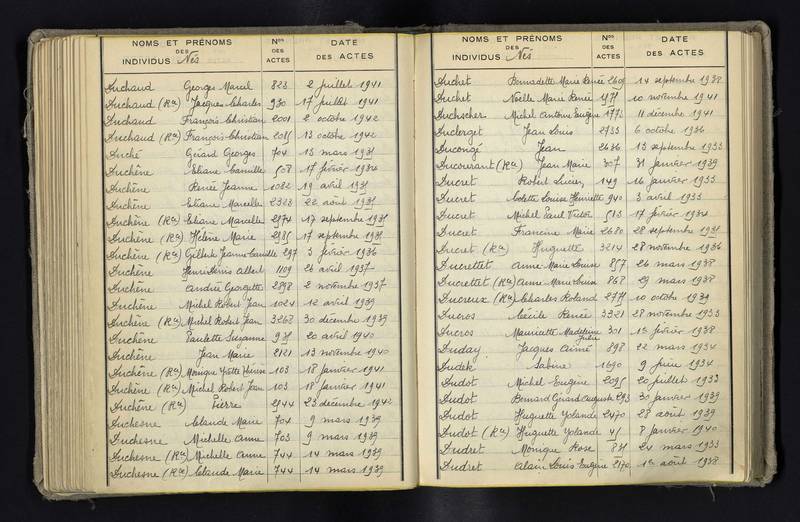 NOMS ET PRÉNOMS
DES
INDIVIDUS Nés
Nos
DES
ACTES
DATE
DES ACTES
Duchaud Georges Marcel 823 2 juillet 1941
Duchaud (Ra) Jacques Charles 930 17 juillet 1941
Duchaud François Christian 2001 2 octobre 1942
Duchaud (Ra) François Christian 2085 13 octobre 1942
Duché Girard Georges 704 15 mars 1935
Duchêne Eliane Camille 508 17 février 1934
Duchêne Renée Jeanne 1082 19 avril 1935
Duchêne Eliane Marcelle 2323 22 août 1935
Duchêne (Ra) Eliane Marcelle 2574 17 septembre 1935
Duchêne (Ra) Hélène Marie 2585 17 septembre 1935
Duchêne (Ra) Gilbert Jeanne Camille 297 3 février 1936
Duchêne Henri Louis Albert 1109 26 avril 1937
Duchêne André Georgette 2898 2 novembre 1937
Duchêne Michel Robert Jean 1024 12 avril 1939
Duchêne (Ra) Michel Robert Jean 3262 30 décembre 1939
Duchêne Paulette Suzanne 935 20 avril 1940
Duchêne Jean Marie 2121 13 novembre 1940
Duchêne (Ra) Monique Yvette 103 18 janvier 1941
Duchêne (Ra) Michel Robert Jean 103 18 janvier 1941
Duchêne (Ra) Pierre 2944 23 décembre 1942
Duchesne Claude Marie 704 9 mars 1939
Duchesne Michelle Anne 703 9 mars 1939
Duchesne (Ra) Michelle Anne 744 14 mars 1939
Duchesne (Ra) Claude Marie 744 14 mars 1939
NOMS ET PRÉNOMS
DES
INDIVIDUS Nés
Nos
DES
ACTES
DATE
DES ACTES
Duchet Bernadette Marie Renée 2605 14 septembre 1938
Duchet Noëlle Marie Renée 1571 10 novembre 1941
Duchscher Michel Antoine Eugène 1773 11 décembre 1941
Duclerget Jean Louis 2733 6 octobre 1936
Ducongé Jean 2636 15 septembre 1933
Ducourant (Ra) Jean Marie 307 31 janvier 1939
Ducret Robert Lucien 149 16 janvier 1933
Ducret Colette Louise Henriette 940 3 avril 1933
Ducret Michel Paul Victor 513 17 février 1934
Ducret Francine Marie 2680 28 septembre 1935
Ducret (Ra) Huguette 3214 28 novembre 1936
Ducrettet Anne Marie Louise 857 26 mars 1938
Ducrettet (Ra) Anne Marie Louise 868 29 mars 1938
Ducreux (Ra) Charles Roland 2771 10 octobre 1939
Ducros Cécile Renée 3321 28 novembre 1933
Ducros Mauricette Madeleine 301 15 février 1938
Julie
Duday Jacques Aimé 898 22 mars 1934
Dudek Sabine 1690 9 juin 1934
Dudot Michel Eugène 2095 20 juillet 1933
Dudot Bernard Girard Auguste 293 30 janvier 1939
Dudot Huguette Yolande 2470 28 août 1939
Dudot (Ra) Huguette Yolande 45 8 janvier 1940
Dudret Monique Rose 831 24 mars 1933
Dudret Alain Louis Eugène 2170 1er août 1938